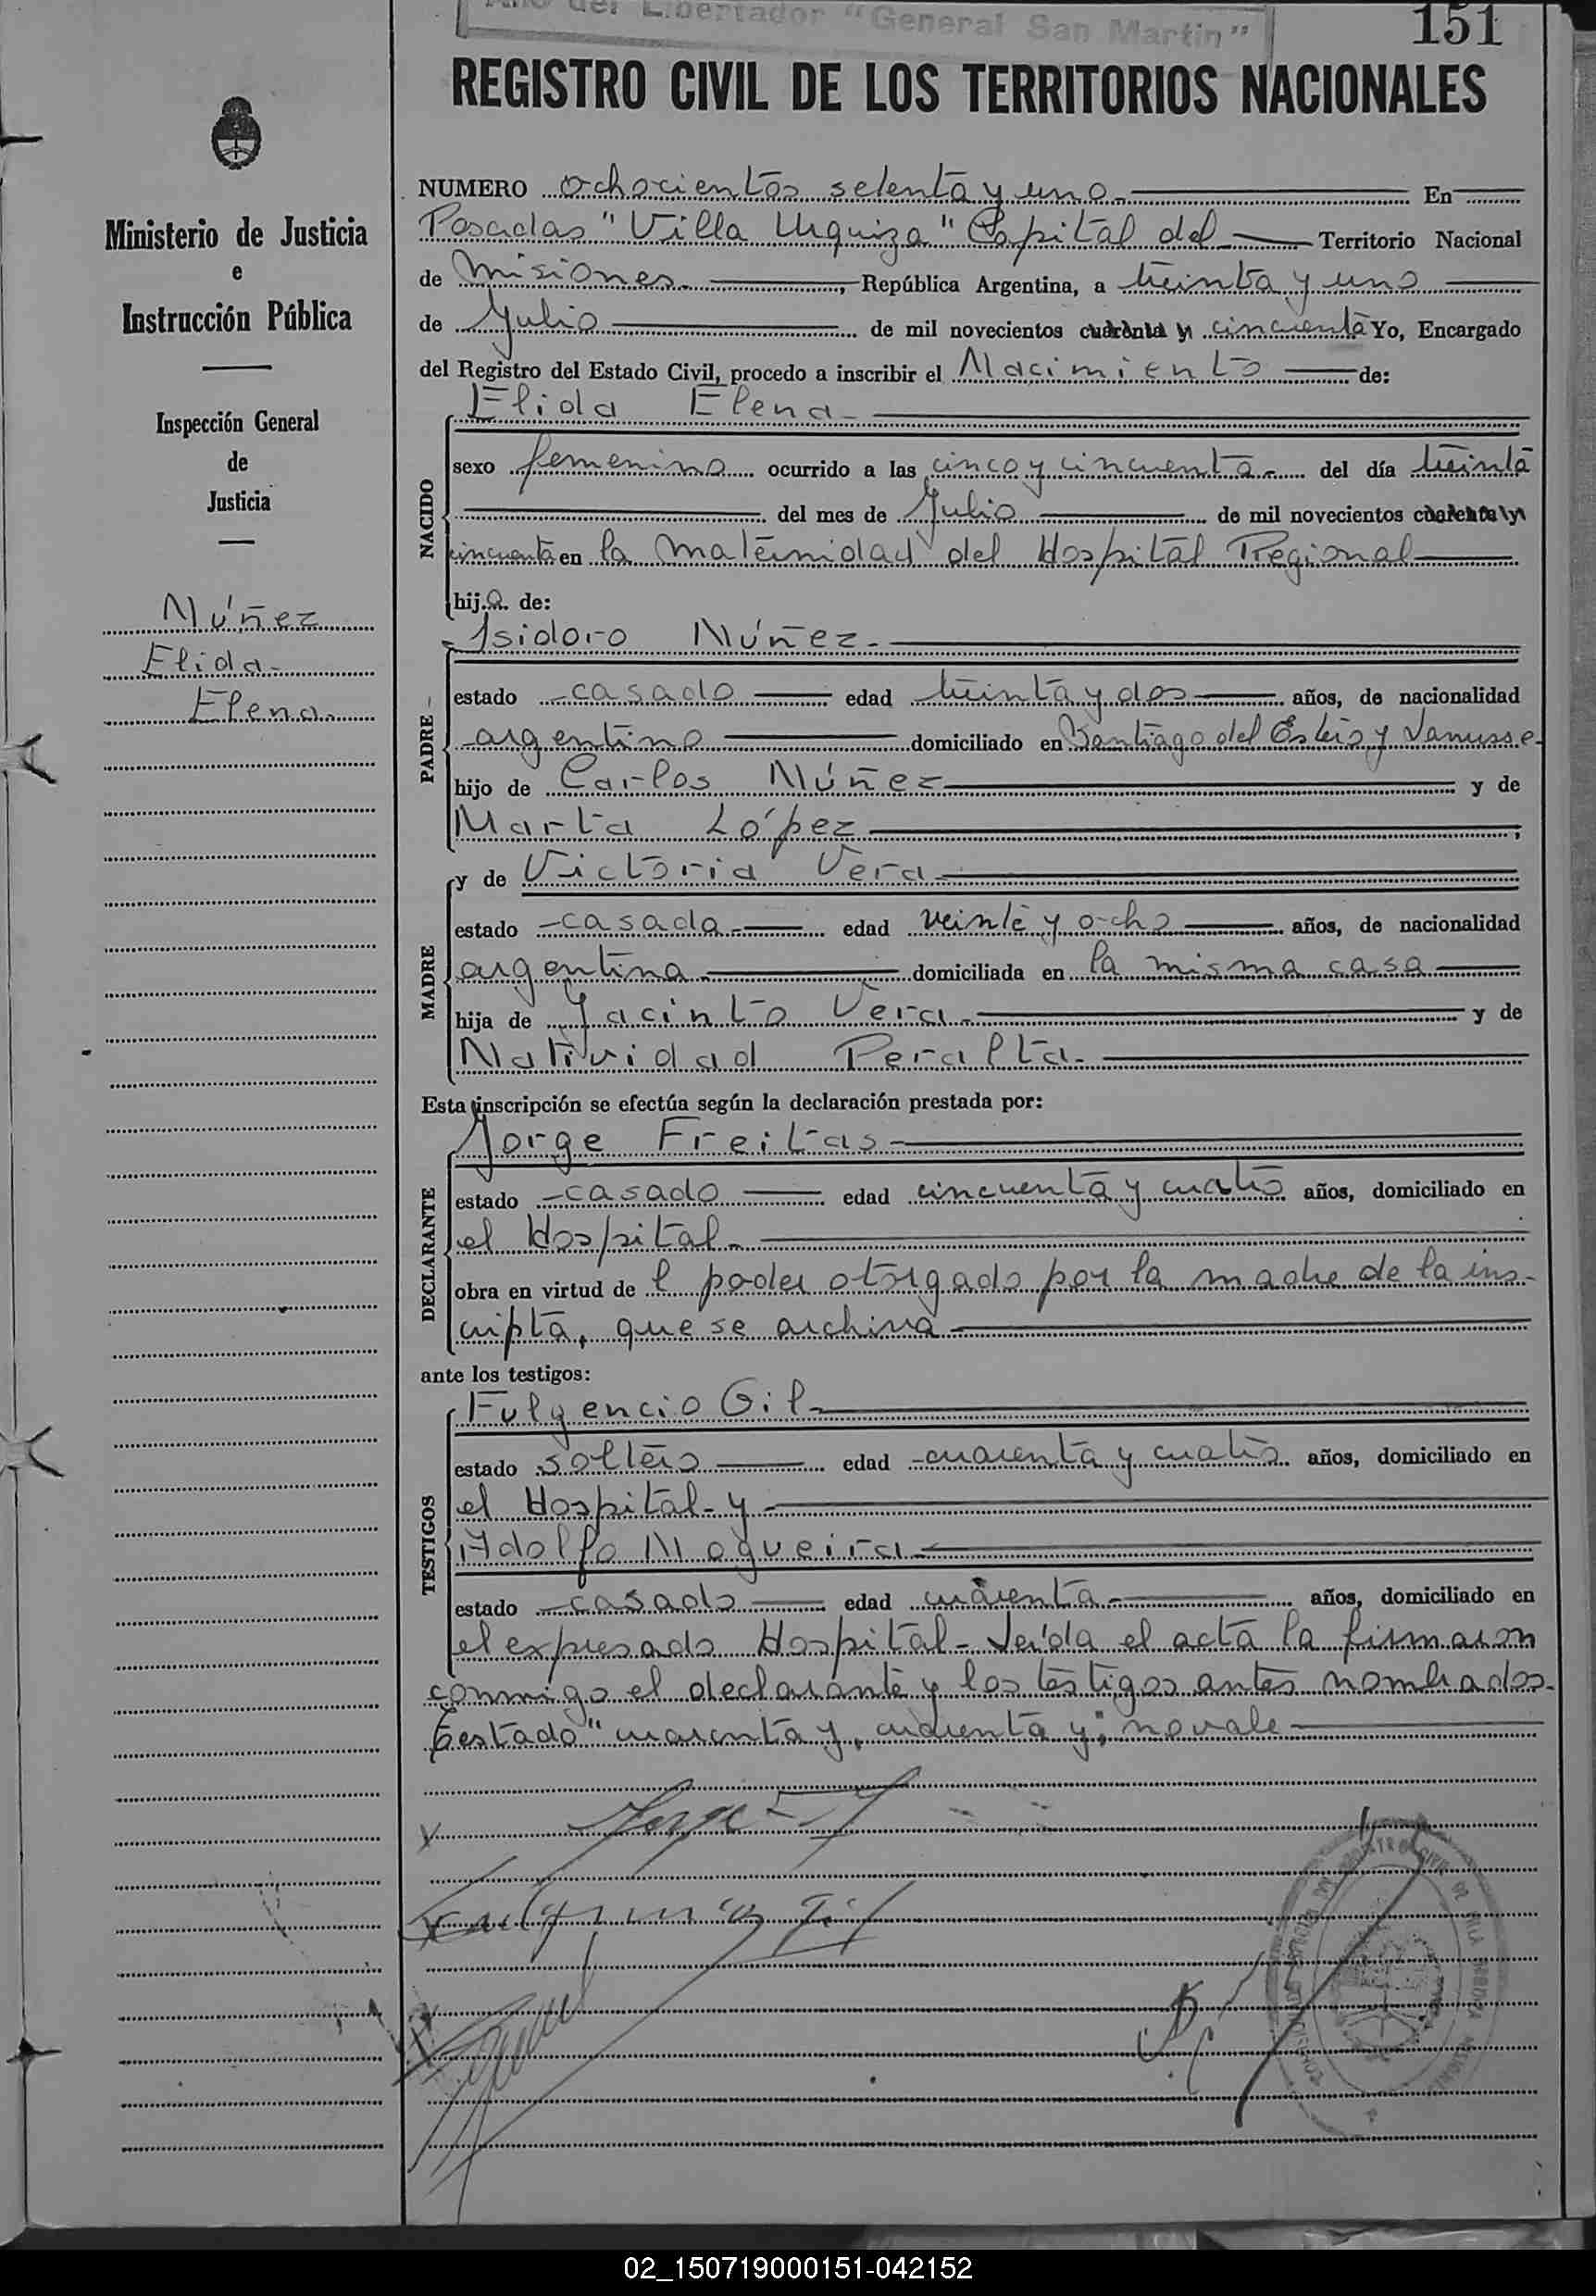 Año del Libertador "General San Martin"
151
REGISTRO CIVIL DE LOS TERRITORIOS NACIONALES
Ministerio de Justicia
e
Instrucción Pública
Inspección General
de
Justicia
Núñez
Elida
Elena
NUMERO ochocientos setenta y uno En
Posadas "Villa Urquiza" Capital del Territorio Nacional
de Misiones, República Argentina, a treinta y uno
de Julio de mil novecientos cuarenta y cincuenta Yo, Encargado
del Registro del Estado Civil, procedo a inscribir el Nacimiento de:
NACIDO
Elida Elena
sexo femenino ocurrido a las cinco y cincuenta del día treinta
del mes de Julio de mil novecientos cuarenta y
cincuenta en la maternidad del Hospital Regional
hija de:
PADRE
Isidoro Núñez
estado casado edad treinta y dos años, de nacionalidad
argentino domiciliado en Santiago del Estero y Lanusse
hijo de Carlos Núñez y de
Marta López
MADRE
y de Victoria Vera
estado casada edad veinte y ocho años, de nacionalidad
argentina domiciliada en la misma casa
hija de Jacinto Vera y de
Natividad Peralta
Esta inscripción se efectúa según la declaración prestada por:
DECLARANTE
Jorge Freitas
estado casado edad cincuenta y cuatro años, domiciliado en
el Hospital
obra en virtud de l poder otorgado por la madre de la ins-
cripta, que se archiva
ante los testigos:
TESTIGOS
Fulgencio Gil
estado soltero edad cuarenta y cuatro años, domiciliado en
el Hospital y
Adolfo Nogueira
estado casado edad cuarenta años, domiciliado en
el expresado Hospital - Leída el acta la firmaron
conmigo el declarante y los testigos antes nombrados.
Testado "cuarenta y, cuarenta y"; no vale
02_150719000151-042152